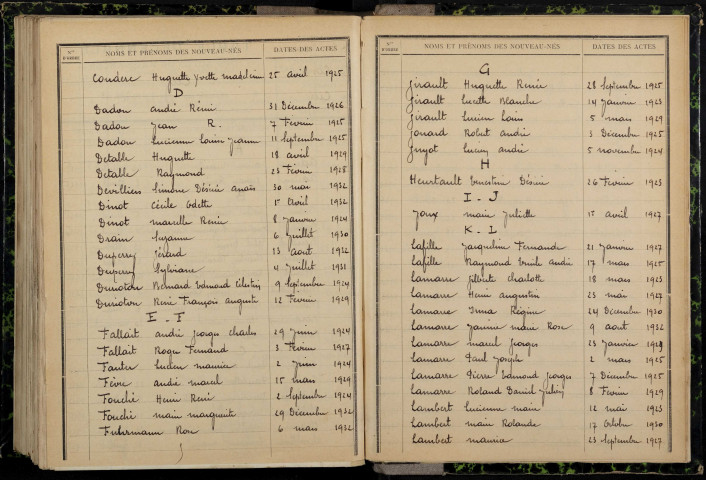 Nos D'ORDRE NOMS ET PRÉNOMS DES NOUVEAU-NÉS DATES DES ACTES
Coudere Huguette Yvette Madeleine 25 avril 1925
D
Dadou André Rémi 31 Décembre 1926
Dadou Jean R. 7 Février 1925
Dadou Lucienne Louise Jeanne 11 Septembre 1925
Detable Huguette 18 avril 1929
Detable Raymond 23 Février 1928
Devilliers Simone Désirée Anaïs 30 mai 1932
Dinot Cécile Odette 1r Avril 1932
Dinot Marcelle Renée 8 Janvier 1924
Drain Suzanne 6 Juillet 1930
Duperry Gérard 13 aout 1932
Duperry Sylviane 4 Juillet 1931
Durioton Bernard Edmond Célestin 9 Septembre 1924
Durioton René François auguste 12 Février 1929
E - F
Fallait andré Georges Charles 29 Juin 1924
Fallait Roger Fernand 3 Février 1927
Fauter Lucien maurice 2 Juin 1924
Fèvre andré marcel 15 mars 1929
Fouché Henri René 2 Septembre 1924
Fouché marie marguerite 29 Décembre 1932
Fuhrmann Rose 6 mars 1932
Nos D'ORDRE NOMS ET PRÉNOMS DES NOUVEAU-NÉS DATES DES ACTES
G
Girault Huguette Renée 28 Septembre 1925
Girault Lucette Blanche 14 Janvier 1923
Girault Lucien Louis 5 mars 1929
Gonard Robert andré 3 Décembre 1925
Guyot Lucien andré 5 novembre 1924
H
Heurtault Ernestine Désirée 26 Février 1923
I - J
Joux marie Juliette 1r avril 1927
K - L
Lafille Jacqueline Fernande 21 Janvier 1927
Lafille Raymond Emile andré 17 mars 1925
Lamarre Gilberte Charlotte 18 mars 1923
Lamarre Henri augustin 23 mai 1927
Lamarre Irma Régine 24 Décembre 1930
Lamarre Jeanne marie Rose 9 aout 1932
Lamarre marcel Georges 23 Janvier
Lamarre Paul Joseph 2 mars 1925
Lamarre Pierre Edmond Georges 7 Décembre 1925
Lamarre Roland Daniel Julien 8 Février 1929
Lambert Lucienne marie 12 mai 1923
Lambert marie Rolande 17 Octobre 1930
Lambert maurice 23 Septembre 1927